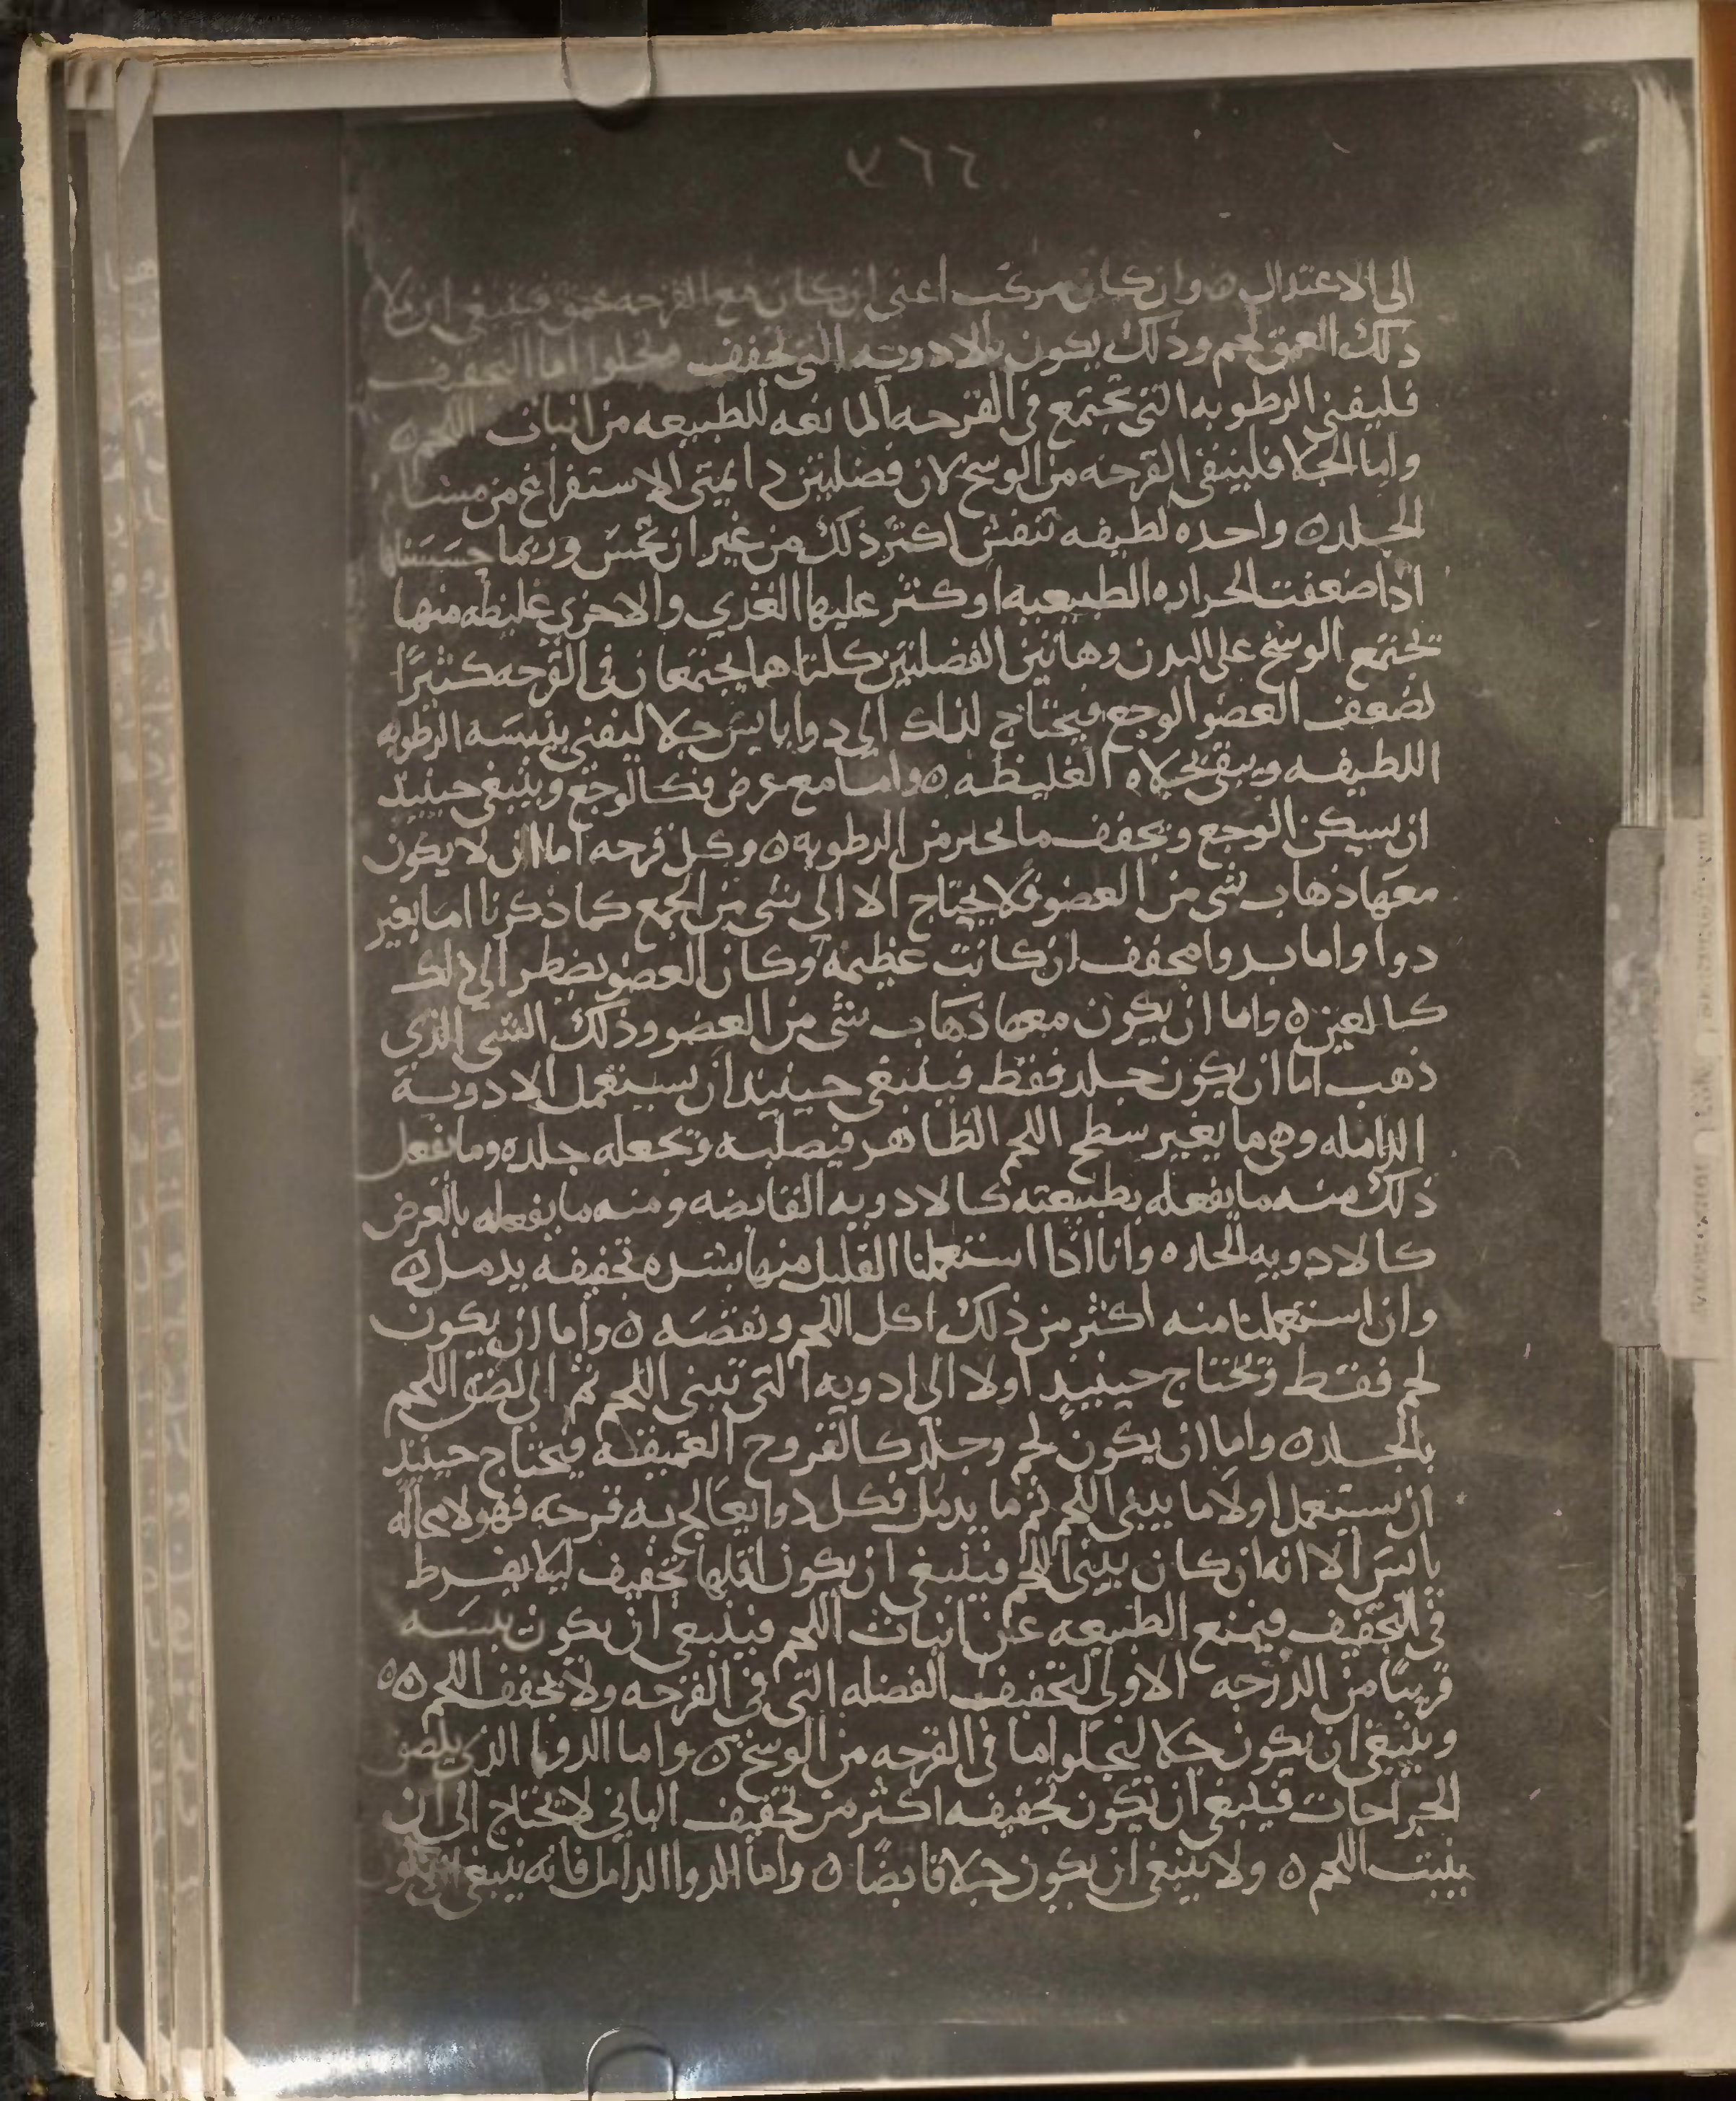 ٧٦٦
الى الاعتدال ٥ وان كان مركب اعني ان كان مع القرحه عمق فينبغي ان يملا
ذلك العمق لحم وذلك يكون بالادويه التي تجفف وتجلوا اما التجفيف
فليفني الرطوبه التي تجتمع في القرحه المانعه للطبيعه من انبات اللحم ٥
واما الجلا فلينقي القرحه من الوسخ لان فضلتين دايمتي الاستفراغ من مسام
الجلد ٥ واحده لطيفه تنفش اكثر ذلك من غير ان تحس وربما حسسنا
اذا ضعفت الحراره الطبيعيه او كثر عليها الغذي والاخري غليظه منها
تجتمع الوسخ على البدن وهاتين الفضلتين كلتاهما يجتمعان في القرحه كثيرًا
لضعف العضو الوجع فيحتاج لذلك الي دوا يابس جلا ليفني بيبسه الرطوبه
اللطيفه وينقي بجلاه الغليظه ٥ واما مع عرض فكالوجع وينبغي حينيذ
ان يسكن الوجع ويجفف ما يحلر من الرطوبه ٥ وكل قرحه اما ان لا يكون
معها ذهاب شي من العضو فلا يحتاج الا الي شي من الجمع كما ذكرنا اما بغير
دوا واما بدوا مجفف ان كانت عظيمه وكان العضو يضطر الي ذلك
كالعين ٥ واما ان يكون معها ذهاب شي من العضو وذلك الشي الذي
ذهب اما ان يكون جلد فقط فينبغي حينيذ ان يستعمل الادوية
الدامله وهي ما يغير سطح اللحم الظاهر فيصلبه وتجعله جلده وما يفعل
ذلك منه ما يفعله بطبيعته كالادويه القابضه ومنه ما يفعله بالعرض
كالادويه الحاره وانا اذا استعملنا القليل منها بشده تجفيفه يدمل ٥
وان استعملنا منه اكثر من ذلك اكل اللحم ونقصه ٥ واما ان يكون
لحم فقط وتحتاج حينيذ اولا الى ادويه التي تبني اللحم ثم الى لصق اللحم
بالجلد ٥ واما ان يكون لحم وجلد كالقروح العميقه فيحتاج حينيذ
ان يستعمل اولا ما يبني اللحم ثم ما يدمل فكل دوا يعالج به قرحه فهو لا محاله
يابس الا انه ان كان يبني اللحم فينبغي ان يكون اقلها تجفيف ليلا يفرط
في التجفيف فيمنع الطبيعه عن انبات اللحم فينبغي ان يكون يبسه
قريبًا من الدرجه الاولى لتجفيف الفضله التي في القرحه ولا يجفف اللحم ٥٥
وينبغي ان يكون جلا ليجلوا ما في القرحه من الوسخ ٥ واما الدوا الذي يلصق
الجراحات فينبغي ان تكون تجفيفه اكثر من تجفيف الباني لا يحتاج الى ان
ينبت اللحم ٥ ولا ينبغي ان يكون جلا قابضًا ٥ واما الدوا الدامل فانه ينبغي ان يكون